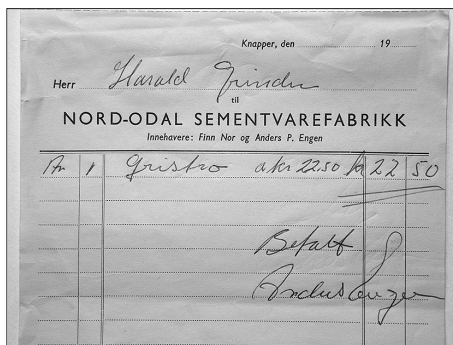 Knapper, den 19
Herr Harald Grinder
til
NORD-ODAL SEMENTVAREFABRIKK
Innehavere: Finn Nor og Anders P. Engen
1 Gristro a kr 22.50 kr 22 50
Betalt
Anders Engen